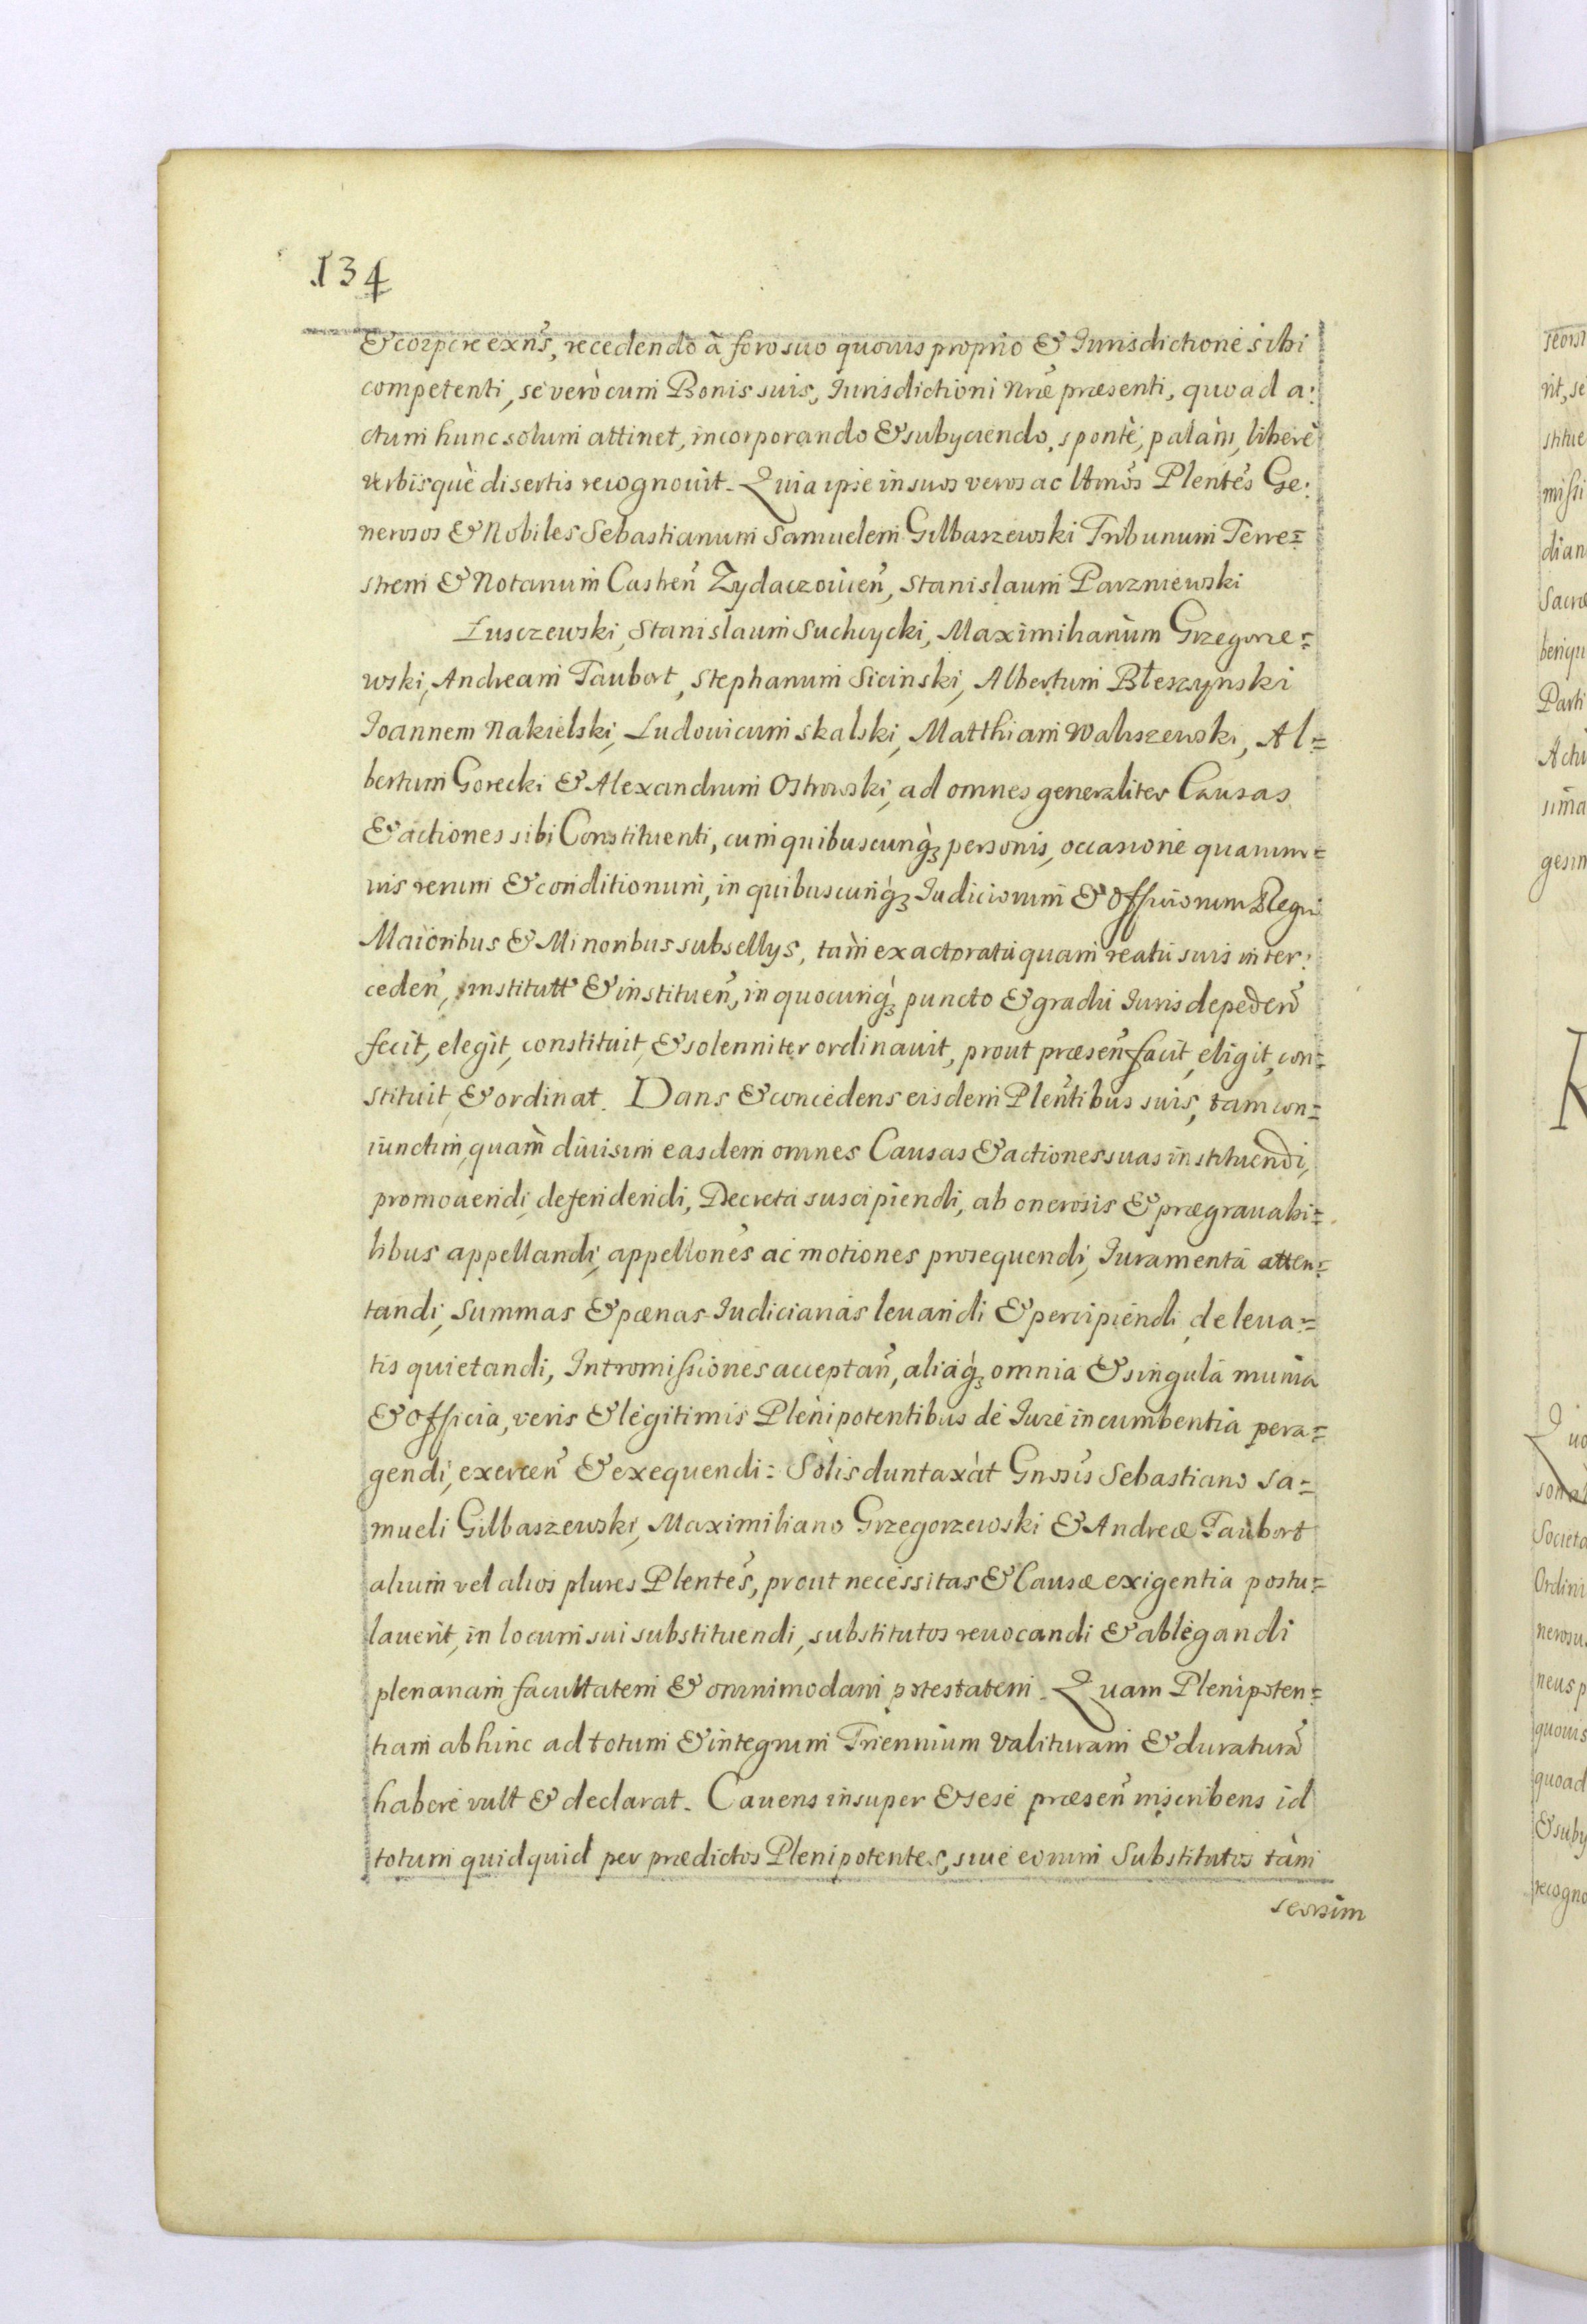 134
& corpore exñs, recedendo à foro suo quovis proprio & Iurisdictione sibi
competenti, se verò cum Bonis suis, Iurisdictioni nræ præsenti, quoad a:
ctum hunc solum attinet, incorporando & subyciendo, spontè, palàm, liberè
verbisquè disertis recognouit. Quia ipse in suos veros ac ltmos Plentes Ge:
nerosos & Nobiles Sebastianum Samuelem Gilbaszewski Tribunum Terre=
strem & Notarium Castreñ Zydaczouieñ, Stanislaum Parzniewski
Łusczewski, Stanislaum Suchcycki, Maximilianum Grzegorze=
wski, Andream Taubort, Stephanum Sicinski, Albertum Błeszynski
Joannem Nakielski, Ludouicum Skalski, Matthiam Waliszewski, Al=
bertum Gorecki & Alexandrum Ostrowski, ad omnes generaliter Causas
& actiones sibi Constituenti, cum quibuscunq́ꝫ personis, occasione quarum=
uis rerum & conditionum, in quibuscunq́ꝫ Iudiciorum & Officiorum Regni
Maioribus & Minoribus subsellys, tàm ex actoratu quam reatu suis inter:
cedeñ, institutt & institueñ, in quocunq́ꝫ puncto & gradu Iuris depedeñ
fecit, elegit, constituit, & solenniter ordinauit, prout præseñ facit, eligit, con=
stituit & ordinat. Dans & concedens eisdem Plentibus suis, tam con=
iunctim, quàm diuisim easdem omnes Causas & actiones suas instituendi,
promouendi, defendendi, Decreta suscipiendi, ab onerosis & prægrauabi=
libus appellandi, appellones ac motiones prosequendi, Iuramenta atten=
tandi, Summas & pœnas Iudiciarias leuandi & percipiendi, de leua=
tis quietandi, Intromissiones acceptañ, aliaq́ꝫ omnia & singula munia
& Officia, veris & legitimis Plenipotentibus de Iure incumbentia pera=
gendi, exerceñ & exequendi: Solis duntaxàt Gnosis Sebastiano Sa=
mueli Gilbaszewski, Maximiliano Grzegorzewski & Andreæ Taubort
alium vel alios plures Plentes, prout necessitas & Causæ exigentia postu=
lauerit, in locum sui substituendi, substitutos reuocandi & ablegandi
plenariam facultatem & omnimodam potestatem. Quam Plenipoten=
tiam abhinc ad totum & integrum Triennium Valituram & duraturã
habere vult & declarat. Cauens insuper & sese præseñ inscribens id
totum quidquid per prædictos Plenipotentes, siue eorum Substitutos tàm
seorsim